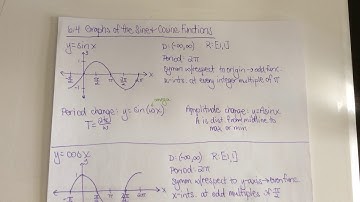 6.4 Graphs of the Sine + Cosine Functions
y = sin x
D: (-∞, ∞) R: [-1, 1]
Period: 2π
Symm w/ respect to origin → odd func.
x-ints. at every integer multiple of π
Period change: y = sin(ωx)
omega
T = 2π/ω
Amplitude change: y = A sin x
A is dist. from midline to
max or min
y = cos x
D: (-∞, ∞) R: [-1, 1]
Period: 2π
Symm w/ respect to y-axis → even func.
x-ints. at odd multiples of π/2